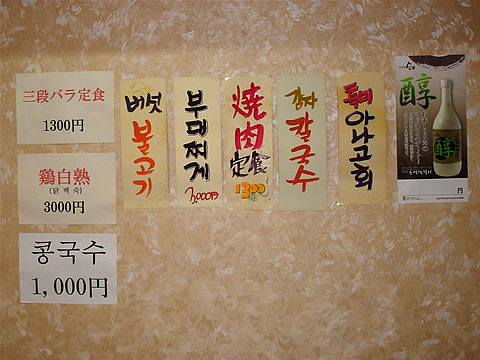 三段バラ定食
1300円
鶏白熟
(닭 백 숙)
3000円
콩국수
1,000円
버섯
불고기
부대찌게
3,000円
焼肉
定食
1300
감자
칼국수
특미
아나고회
醇
醇
円